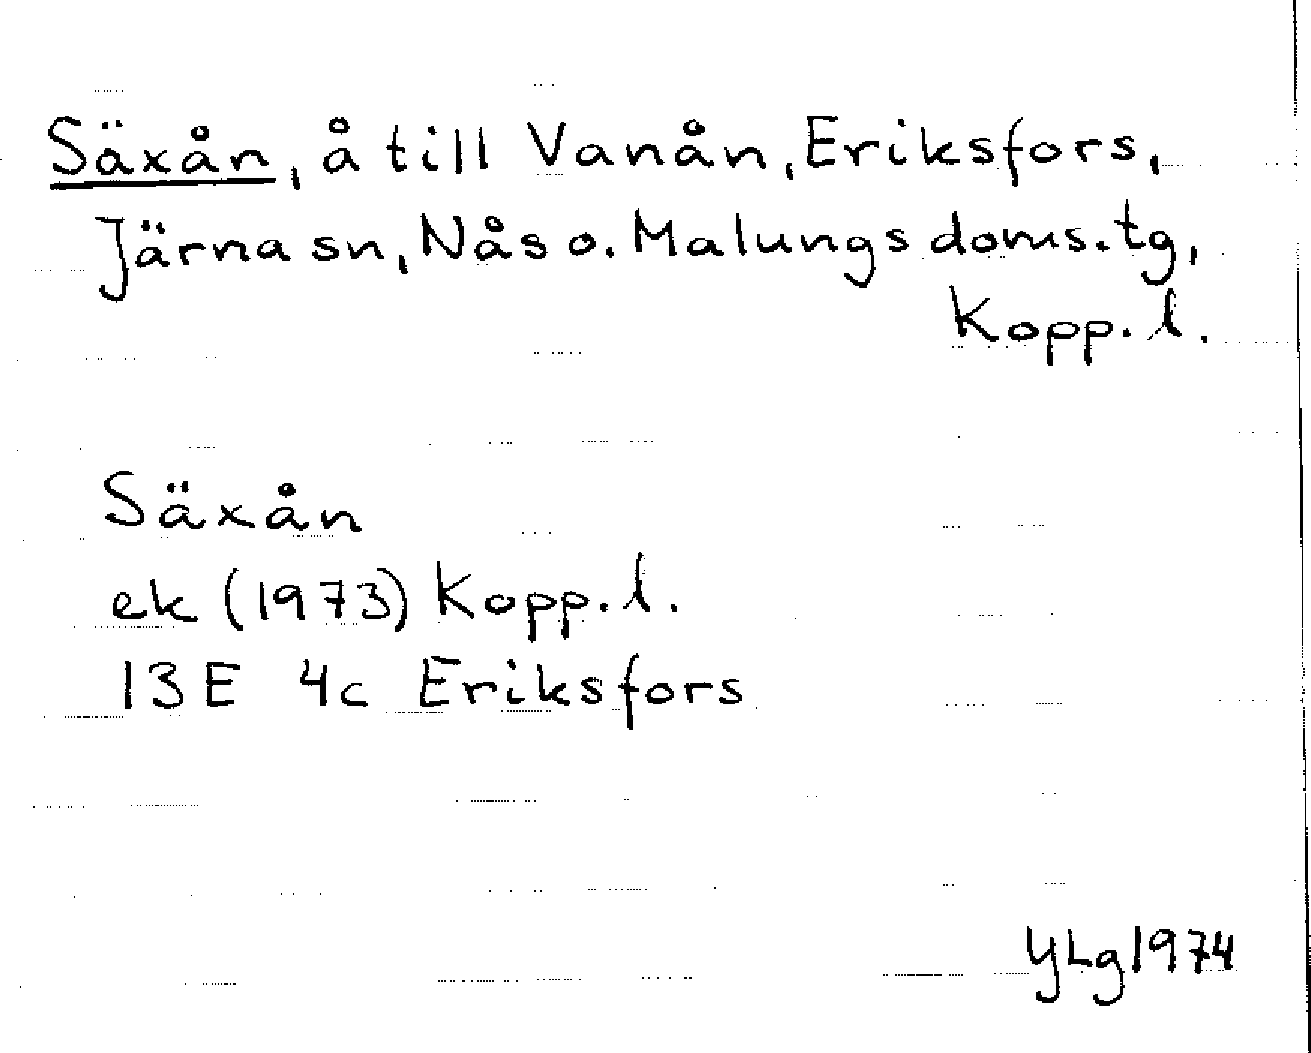 Säxån, å till Vanån, Eriksfors,
Järna sn, Nås o. Malungs doms.tg,
Kopp. l.
Säxån
ek (1973) Kopp. l.
13E 4c Eriksfors
YLg 1974